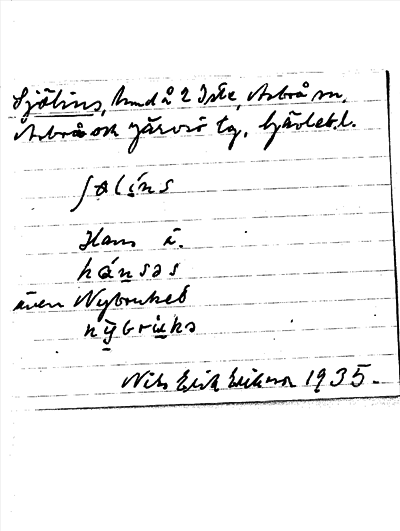 Sjölins, hmd å 2 Iste, Arbrå sn,
Arbrå och Järvsö tg, Gävleb. l.
ʃøli̱ns
Hans ä.
hánsəs
även Nybruket
ny̱bru̱kə
Nils Erik Erikson 1935.